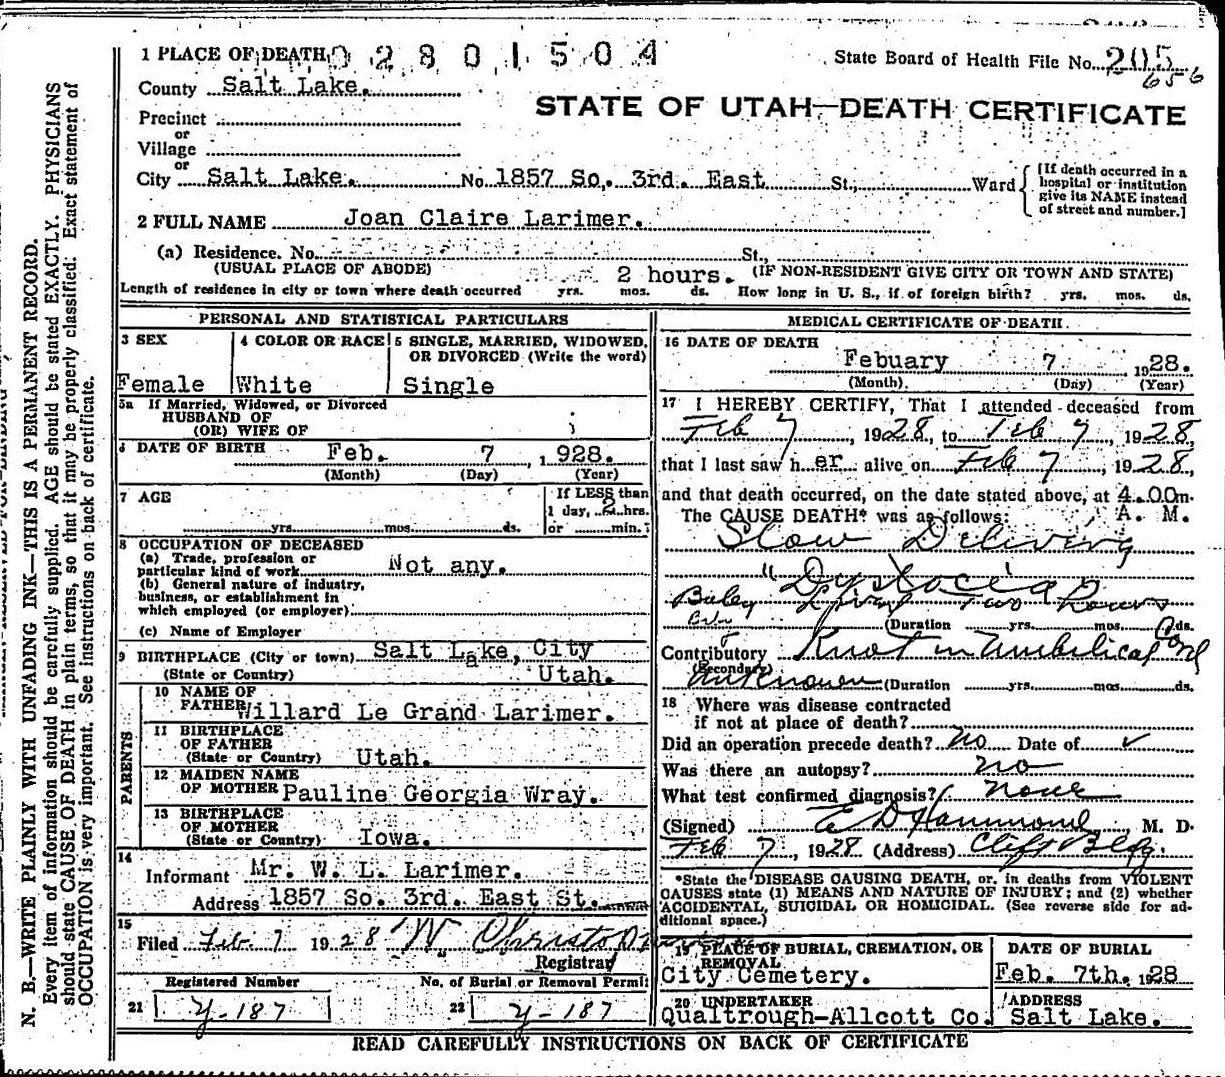 1 PLACE OF DEATH 02801504
State Board of Health File No. 205
656
County Salt Lake.
STATE OF UTAH—DEATH CERTIFICATE
Precinct
or
Village
or
City Salt Lake. No. 1857 So. 3rd. East St., Ward
[If death occurred in a
hospital or institution
give its NAME instead
of street and number.]
2 FULL NAME Joan Claire Larimer.
(a) Residence. No. St.,
(USUAL PLACE OF ABODE) 2 hours. (IF NON-RESIDENT GIVE CITY OR TOWN AND STATE)
Length of residence in city or town where death occurred yrs. mos. ds. How long in U. S., if of foreign birth? yrs. mos. ds.
PERSONAL AND STATISTICAL PARTICULARS
3 SEX 4 COLOR OR RACE 5 SINGLE, MARRIED, WIDOWED,
OR DIVORCED (Write the word)
Female White Single
5a If Married, Widowed, or Divorced
HUSBAND OF
(OR) WIFE OF
6 DATE OF BIRTH Feb. 7 , 1928.
(Month) (Day) (Year)
7 AGE If LESS than
1 day, 2 hrs.
yrs. mos. ds. or min.
8 OCCUPATION OF DECEASED
(a) Trade, profession or
particular kind of work Not any.
(b) General nature of industry,
business, or establishment in
which employed (or employer)
(c) Name of Employer
9 BIRTHPLACE (City or town) Salt Lake, City
(State or Country) Utah.
PARENTS
10 NAME OF
FATHER Willard Le Grand Larimer.
11 BIRTHPLACE
OF FATHER
(State or Country) Utah.
12 MAIDEN NAME
OF MOTHER Pauline Georgia Wray.
13 BIRTHPLACE
OF MOTHER
(State or Country) Iowa.
14
Informant Mr. W. L. Larimer.
Address 1857 So. 3rd. East St.
15
Filed Feb 7 1928 W Christo
Registrar
Registered Number No. of Burial or Removal Permit
21 y-187 22 y-187
MEDICAL CERTIFICATE OF DEATH
16 DATE OF DEATH
Febuary 7 1928.
(Month) (Day) (Year)
17 I HEREBY CERTIFY, That I attended deceased from
Feb 7, 1928, to Feb 7, 1928,
that I last saw her alive on Feb 7, 1928,
and that death occurred, on the date stated above, at 4.00m.
The CAUSE DEATH* was as follows: A. M.
Slow Delivery
"Dystocia"
Baby living Two hours
(Duration yrs. mos. ds.
Contributory Knot in Umbilical Cord
(Secondary)
Unknown (Duration yrs. mos. ds.
18 Where was disease contracted
if not at place of death?
Did an operation precede death? No Date of ✓
Was there an autopsy? no
What test confirmed diagnosis? none
(Signed) E D Hammond M. D.
Feb 7, 1928 (Address) Clift Bldg.
*State the DISEASE CAUSING DEATH, or, in deaths from VIOLENT
CAUSES state (1) MEANS AND NATURE OF INJURY; and (2) whether
ACCIDENTAL, SUICIDAL OR HOMICIDAL. (See reverse side for ad-
ditional space.)
19 PLACE OF BURIAL, CREMATION, OR
REMOVAL
City Cemetery.
DATE OF BURIAL
Feb. 7th. 1928
20 UNDERTAKER
Qualtrough-Allcott Co.
ADDRESS
Salt Lake.
READ CAREFULLY INSTRUCTIONS ON BACK OF CERTIFICATE
N. B.—WRITE PLAINLY WITH UNFADING INK—THIS IS A PERMANENT RECORD.
Every item of information should be carefully supplied. AGE should be stated EXACTLY. PHYSICIANS
should state CAUSE OF DEATH in plain terms, so that it may be properly classified. Exact statement of
OCCUPATION is very important. See instructions on back of certificate.